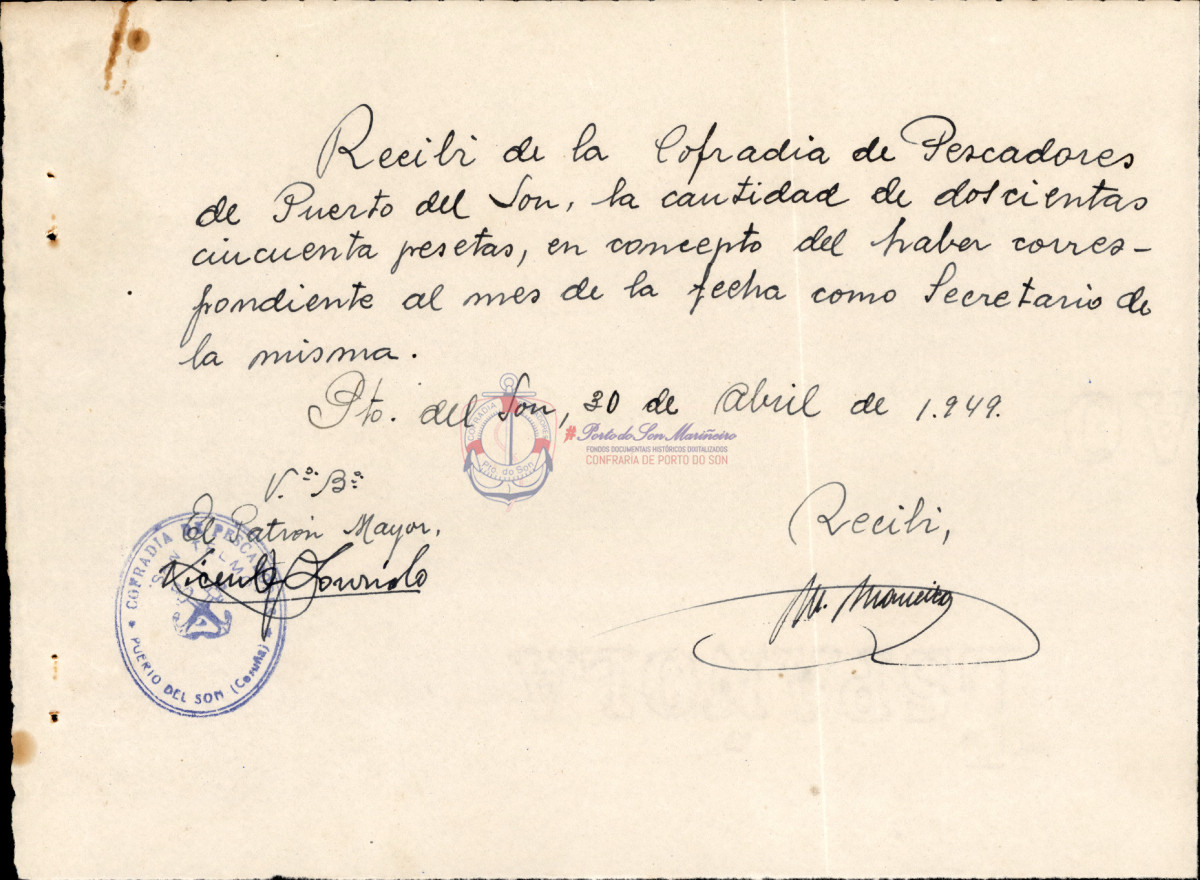 Recibi de la Cofradia de Pescadores
de Puerto del Son, la cantidad de doscientas
cincuenta pesetas, en concepto del haber corres-
pondiente al mes de la fecha como Secretario de
la misma.
Pto. del Son, 30 de Abril de 1.949.
COFRADIA
Pto. do Son
#Porto do Son Mariñeiro
FONDOS DOCUMENTAIS HISTÓRICOS DIXITALIZADOS
CONFRARÍA DE PORTO DO SON
V.º B.º
El Patrón Mayor,
Vicente
COFRADIA DE PESCA
SAN TELMO
PUERTO DEL SON (Coruña)
Recibi,
M.